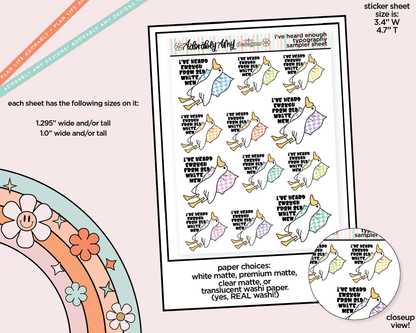 PLAN LIFE ADORABLY • ADORABLY AMY DESIGNS! • PLAN LIFE ADORABLY
sticker sheet
size is:
3.4" W
4.7" T
each sheet has the following sizes on it:
1.295" wide and/or tall
1.0" wide and/or tall
Adorably Amy
Designs
i've heard enough
typography
sampler sheet
I'VE HEARD
ENOUGH
FROM OLD
WHITE
MEN.
I'VE HEARD
ENOUGH
FROM OLD
WHITE
MEN.
I'VE HEARD
ENOUGH
FROM OLD
WHITE
MEN.
I'VE HEARD
ENOUGH
FROM OLD
WHITE
MEN.
I'VE HEARD
ENOUGH
FROM OLD
WHITE
MEN.
I'VE HEARD
ENOUGH
FROM OLD
WHITE
MEN.
I'VE HEARD
ENOUGH
FROM OLD
WHITE
MEN.
I'VE HEARD
ENOUGH
FROM OLD
WHITE
MEN.
I'VE HEARD
ENOUGH
FROM OLD
WHITE
MEN.
I'VE HEARD
ENOUGH
FROM OLD
WHITE
MEN.
I'VE HEARD
ENOUGH
FROM OLD
WHITE
MEN.
I'VE HEARD
ENOUGH
FROM OLD
WHITE
MEN.
paper choices:
white matte, premium matte,
clear matte, or
translucent washi paper.
(yes, REAL washi!)
closeup
view!